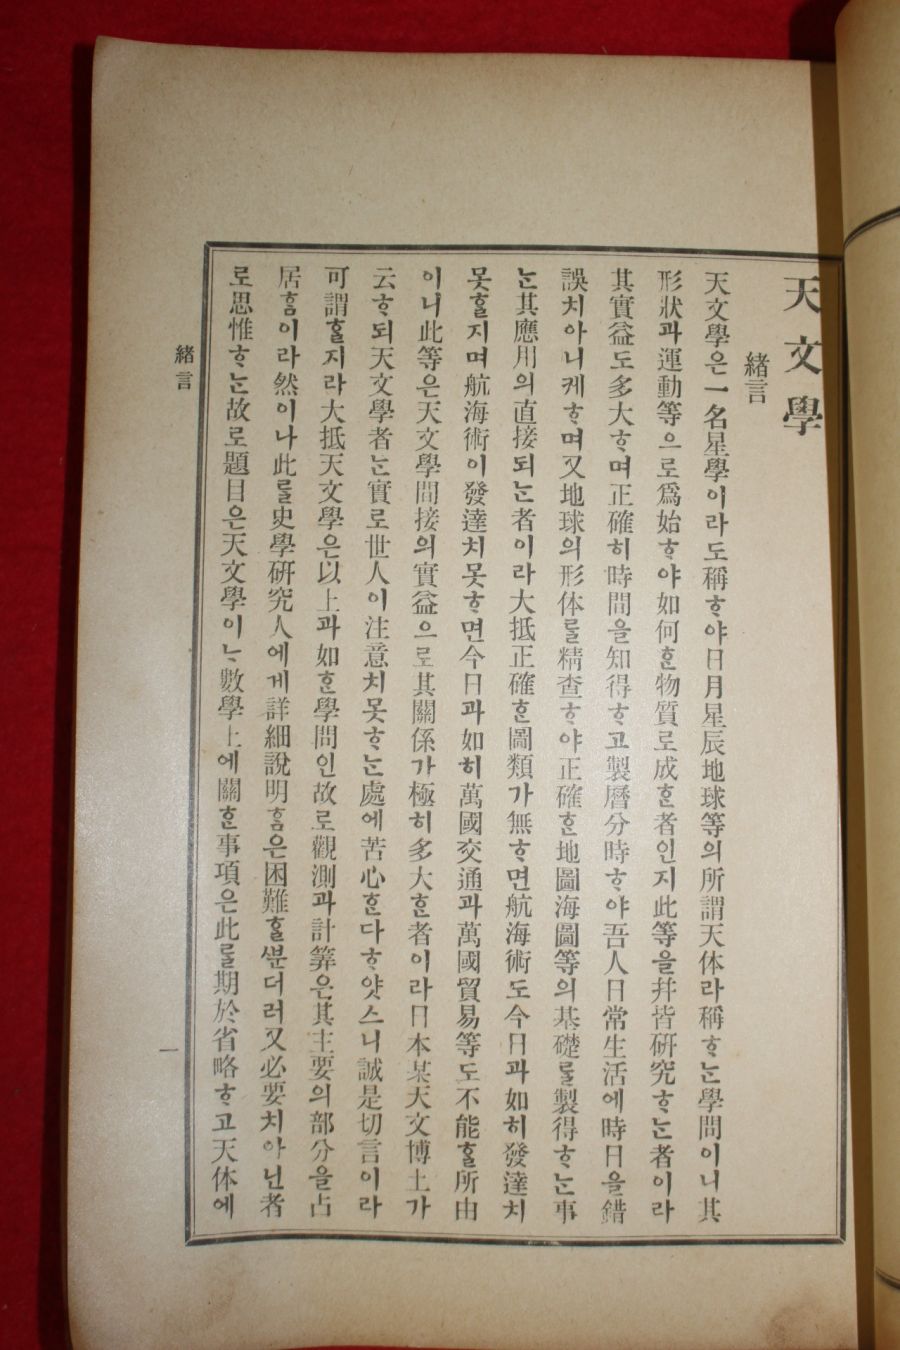 天文學
緖言
天文學은一名星學이라도稱ᄒᆞ야日月星辰地球等의所謂天体라稱ᄒᆞᄂᆞᆫ學問이니其
形狀과運動等으로爲始ᄒᆞ야如何ᄒᆞᆫ物質로成ᄒᆞᆫ者인지此等을幷皆硏究ᄒᆞᄂᆞᆫ者이라
其實益도多大ᄒᆞ며正確히時間을知得ᄒᆞ고製曆分時ᄒᆞ야吾人日常生活에時日을錯
誤치아니케ᄒᆞ며又地球의形体ᄅᆞᆯ精查ᄒᆞ야正確ᄒᆞᆫ地圖海圖等의基礎ᄅᆞᆯ製得ᄒᆞᄂᆞᆫ事
ᄂᆞᆫ其應用의直接되ᄂᆞᆫ者이라大抵正確ᄒᆞᆫ圖類가無ᄒᆞ면航海術도今日과如히發達치
못ᄒᆞᆯ지며航海術이發達치못ᄒᆞ면今日과如히萬國交通과萬國貿易等도不能ᄒᆞᆯ所由
이니此等은天文學間接의實益으로其關係가極히多大ᄒᆞᆫ者이라日本某天文博士가
云ᄒᆞ되天文學者ᄂᆞᆫ實로世人이注意치못ᄒᆞᄂᆞᆫ處에苦心ᄒᆞᆫ다ᄒᆞ얏스니誠是切言이라
可謂ᄒᆞᆯ지라大抵天文學은以上과如ᄒᆞᆫ學問인故로觀測과計筭은其主要의部分을占
居ᄒᆞᆷ이라然이나此ᄅᆞᆯ史學硏究人에게詳細說明ᄒᆞᆷ은困難ᄒᆞᆯᄲᅮᆫ더러又必要치아닌者
로思惟ᄒᆞᄂᆞᆫ故로題目은天文學이ᄂᆞ數學上에關ᄒᆞᆫ事項은此ᄅᆞᆯ期於省略ᄒᆞ고天体에
緖言
一